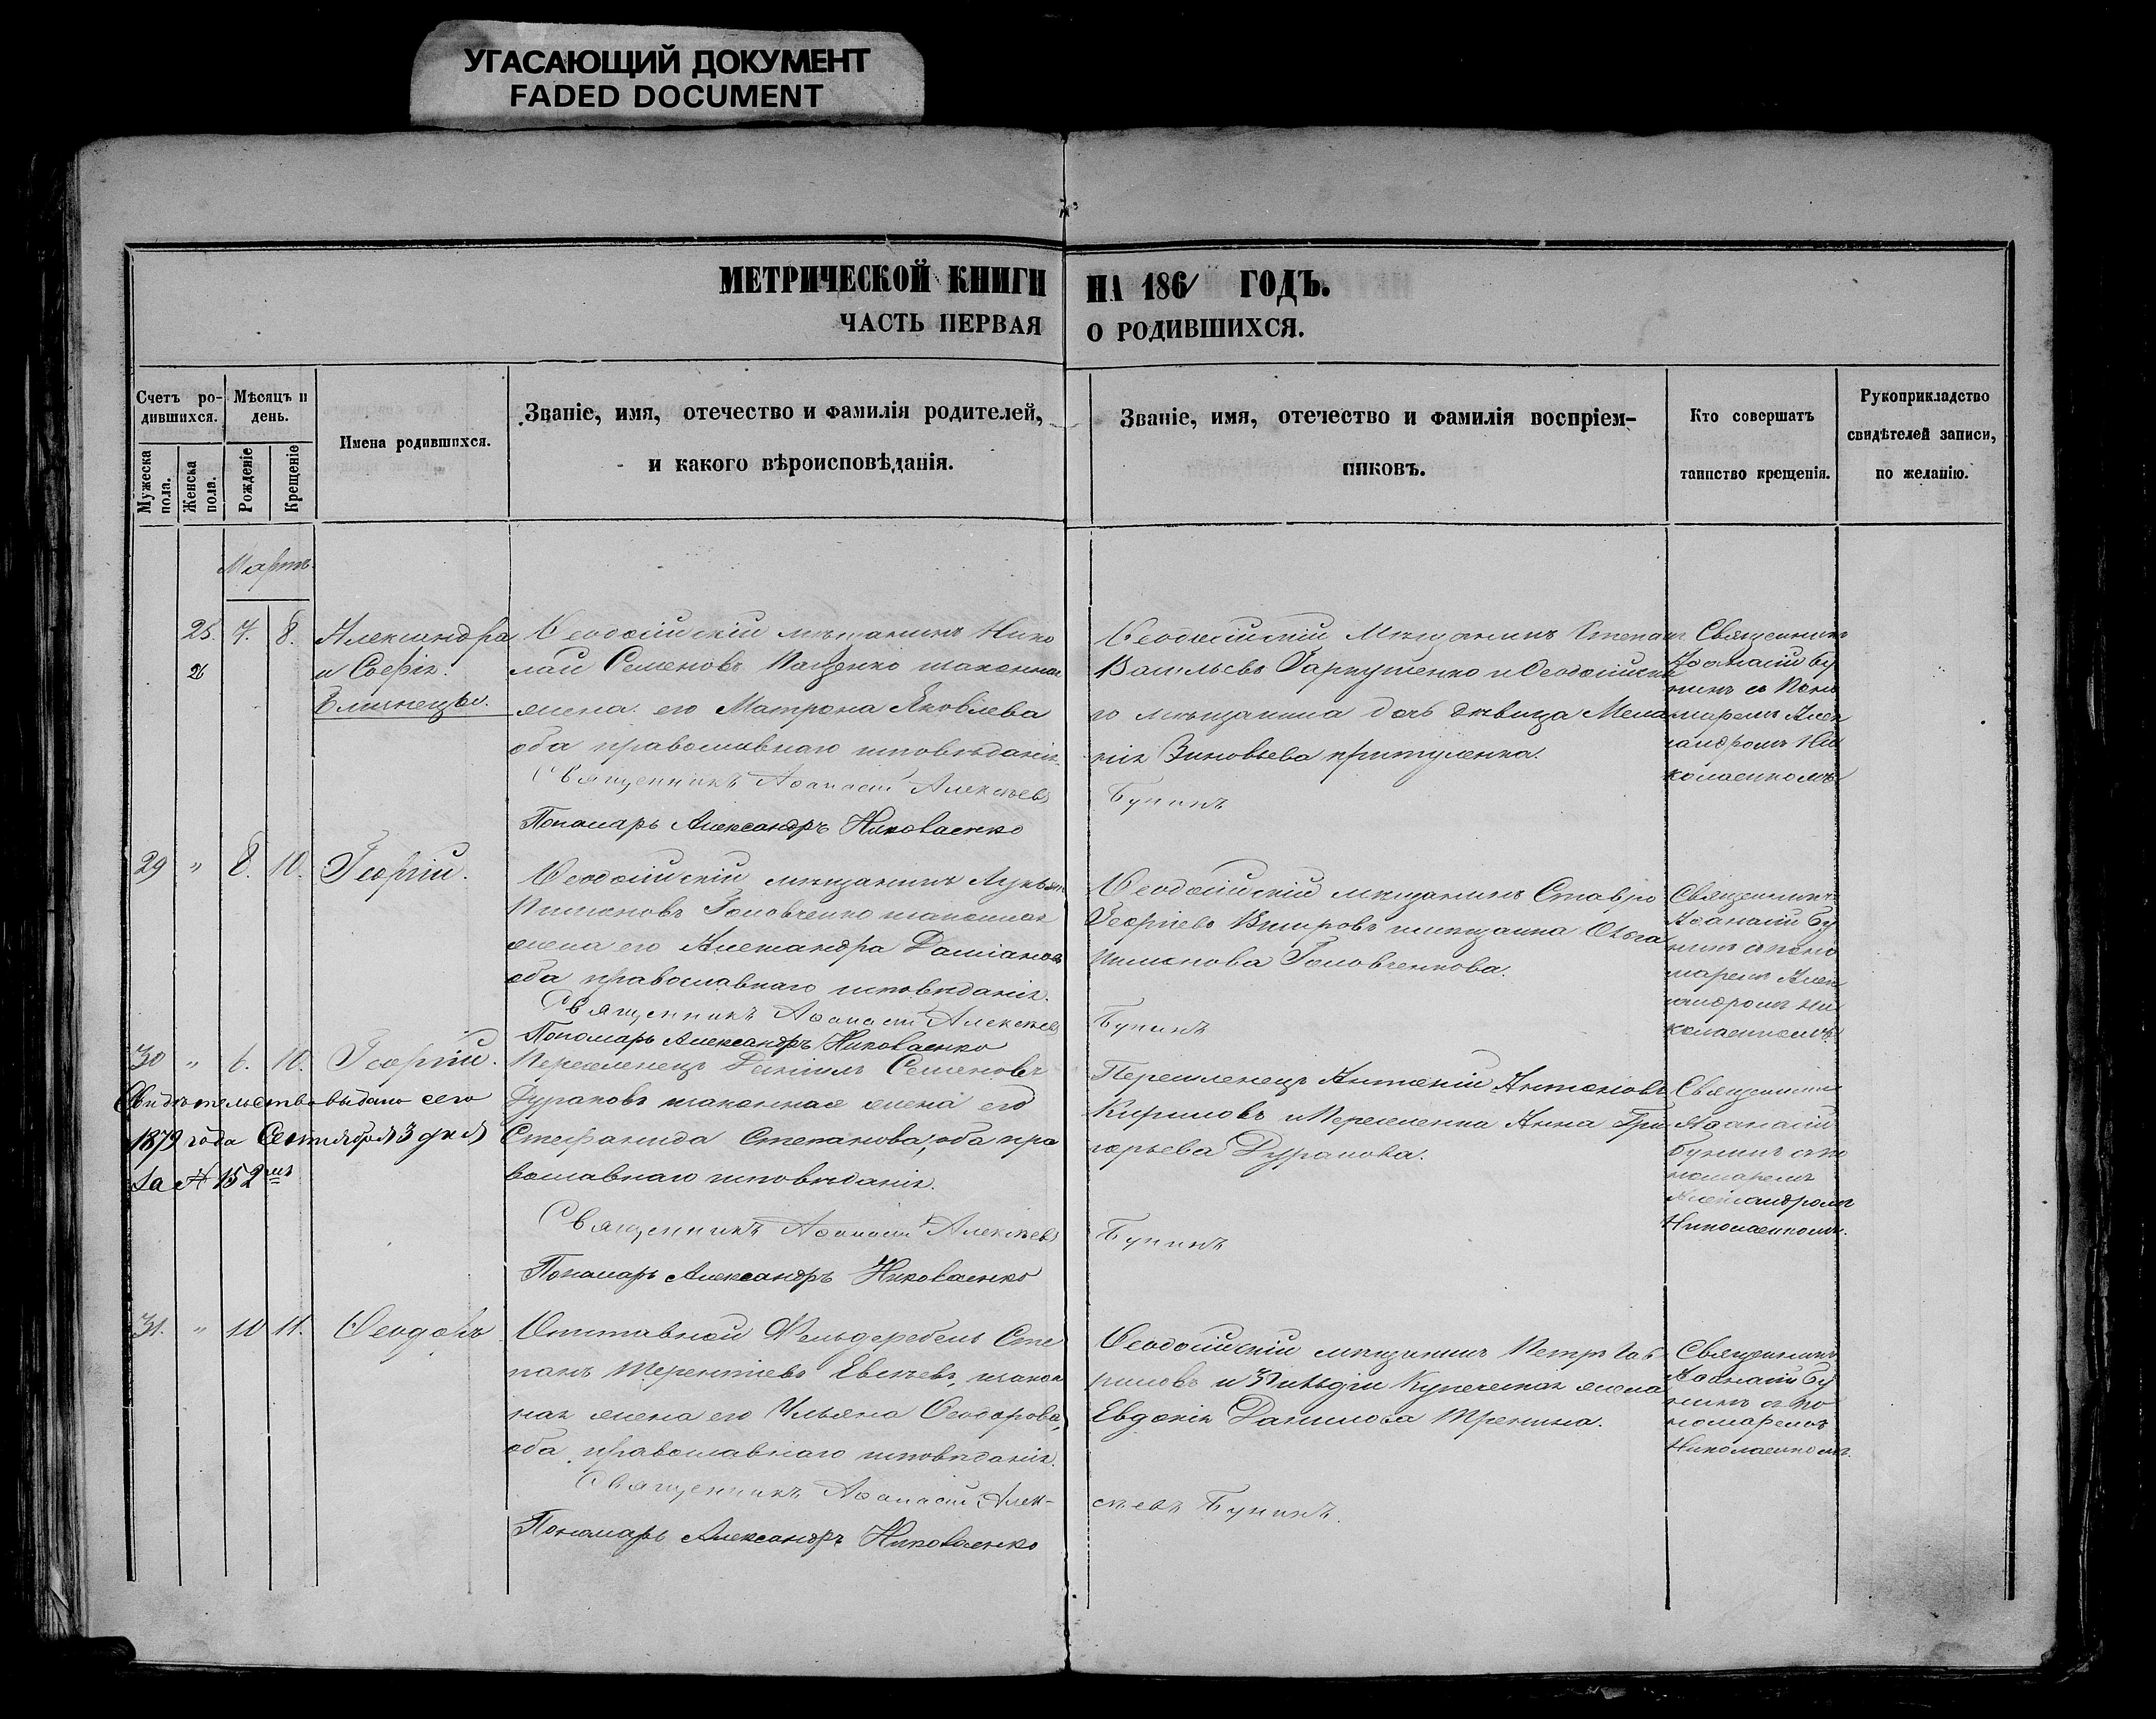 УГАСАЮЩИЙ ДОКУМЕНТ
FADED DOCUMENT
МЕТРИЧЕСКОЙ КНИГИ НА 1861 ГОДЪ.
ЧАСТЬ ПЕРВАЯ О РОДИВШИХСЯ.
Счетъ ро-
дившихся.
Мужеска пола.
Женска пола.
Мѣсяцъ и
день.
Рожденіе
Крещеніе
Имена родившихся.
Званіе, имя, отечество и фамилія родителей,
и какого вѣроисповѣданія.
Званіе, имя, отечество и фамилія воспріем-
никовъ.
Кто совершатъ
таинство крещенія.
Рукоприкладство
свидѣтелей записи,
по желанію.
Мартъ
25. 7. 8. Александра
26
и Софія.
Близнецы.
Ѳеодосійскій мѣщанинъ Нико
лай Семеновъ законная
жена его Матрона Яковлева
оба православнаго исповѣданія.
Священникъ Аѳанасій Алексѣевъ
Пономарь Александръ Николаенко
Ѳеодосійскій Мѣщанинъ Степанъ
Васильевъ Гаркушенко и Ѳеодосійска
го мѣщанина дочь дѣвица Мела
нія Зиновьева Притуленка.
Бунинъ
Священникъ
Аѳанасій Бу
нинъ съ Поно
маремъ Алек
сандромъ Ни
колаенкомъ
29 " 8. 10. Георгій.
Ѳеодосійскій мѣщанинъ Лукьянъ
Пименовъ Головченко законная
жена его Александра Даміанова
оба православнаго исповѣданія.
Священникъ Аѳанасій Алексѣевъ
Пономарь Александръ Николаенко
Ѳеодосійскій мѣщанинъ Ставро
Георгіевъ и мѣщанка Ольга
Пименова Головченкова.
Бунинъ
Священникъ
Аѳанасій Бу
нинъ съ поно
маремъ Алек
сандромъ Ни
колаенкомъ.
30 " 6. 10. Георгій.
Свидѣтельство выдано сего
1879 года Сентября 3 дня
за № 152мъ
Переселенецъ Даніилъ Семеновъ
Дураковъ законная жена его
Стефанида Степанова, оба пра
вославнаго исповѣданія.
Священникъ Аѳанасій Алексѣевъ
Пономарь Александръ Николаенко
Переселенецъ Антоній Антоновъ
Кириловъ и Переселенка Анна Гри
горьева Дуракова.
Бунинъ
Священникъ
Аѳанасій
Бунинъ съ по
номаремъ
Александромъ
Николаенкомъ.
31. " 10 11. Ѳеодоръ
Отставной Фельдфебель Сте
панъ Терентіевъ Евсѣевъ, закон
ная жена его Ульяна Ѳеодорова,
оба православнаго исповѣданія.
Священникъ Аѳанасій Алек-
Пономарь Александръ Николаенко
Ѳеодосійскій мѣщанинъ Петръ Гав
риловъ и Купеческая жена
Евдокія Данилова Тренина.
сѣевъ Бунинъ.
Священникъ
Аѳанасій Бу
нинъ съ По
номаремъ
Николаенкомъ.